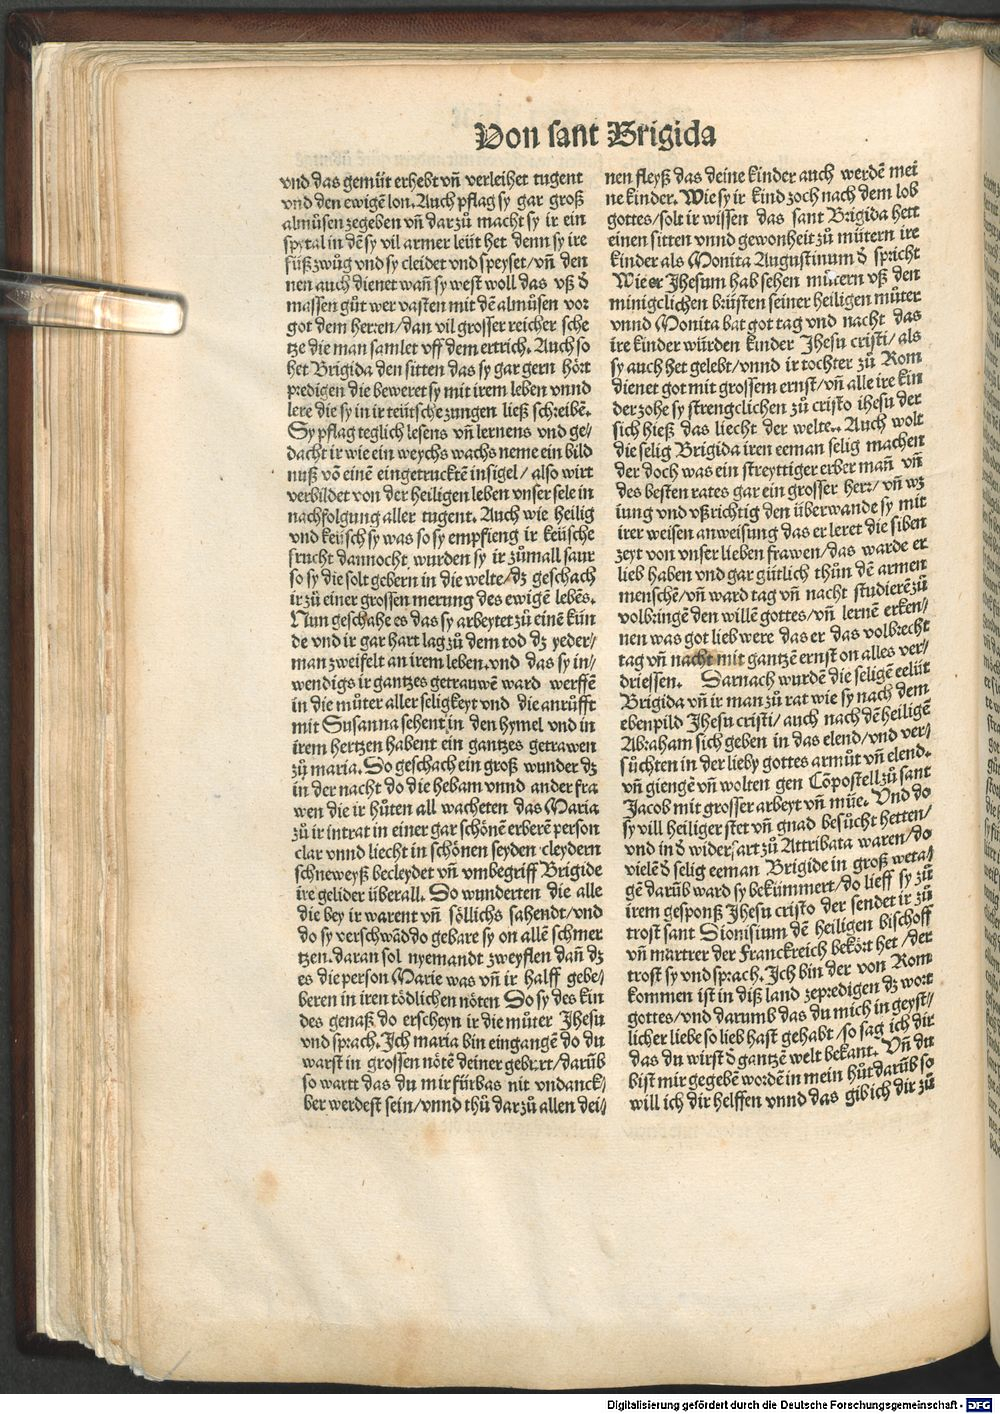 Von sant Brigida
vnd das gemüt erhebt vñ verleihet tugent
vnd den ewigẽ lon. Auch pflag sy gar groß
almůsen zegeben vñ dar zů macht sy ir ein
spytal in dẽ sy vil armer leüt het denn sy ire
füß zwůg vnd sy cleidet vnd speyset/ vñ den
nen auch dienet wañ sy west woll das vß d̕
massen gůt wer vasten mit dẽ almůsen vor
got dem herren/ dan vil grosser reicher sche
tze die man samlet vff dem ertrich. Auch so
het Brigida den sitten das sy gar gern hört
predigen die beweret sy mit irem leben vnnd
lere die sy in ir teütsche zungen ließ schreibẽ.
Sy pflag teglich lesens vñ lernens vnd ge/
dacht ir wie ein weychs wachs neme ein bild
nuß võ einẽ eingetrucktẽ insigel/ also wirt
verbildet von der heiligen leben vnser sele in
nachfolgung aller tugent. Auch wie heilig
vnd keüsch sy was so sy empfieng ir keüsche
frucht dannocht wurden sy ir zůmall saur
so sy die solt gebern in die welte/ dz geschach
ir zů einer grossen merung des ewigẽ lebẽs.
Nun geschahe es das sy arbeytet zů einẽ kin
de vnd ir gar hart lag zů dem tod dz yeder/
man zweifelt an irem leben. vnd das sy in/
wendigs ir gantzes getrauwẽ ward werffẽ
in die můter aller seligkeyt vnd die anrüfft
mit Susanna sehent in den hymel vnd in
irem hertzen habent ein gantzes getrawen
zů maria. So geschach ein groß wunder dz
in der nacht do die hebam vnnd ander fra
wen die ir hůten all wacheten das Maria
zů ir intrat in einer gar schönẽ erberẽ person
clar vnnd liecht in schönen seyden cleydern
schneweyß becleydet vñ vmbegriff Brigide
ire gelider überall. So wunderten die alle
die bey ir warent vñ söllichs sahendt/ vnd
do sy verschwãd do gebare sy on allẽ schmer
tzen. daran sol nyemandt zweyflen dañ dz
es die person Marie was vñ ir halff gebe/
beren in iren tödlichen nöten So sy des kin
des genaß do erscheyn ir die můter Jhesu
vnd sprach. Ich maria bin eingangẽ do du
warst in grossen nötẽ deiner geburt/ darũb
so wartt das du mir fürbas nit vndanck/
ber werdest sein/ vnnd thů dar zů allen dei/
nen fleyß das deine kinder auch werdẽ mei
ne kinder. Wie sy ir kind zoch nach dem lob
gottes/ solt ir wissen das sant Brigida hett
einen sitten vnnd gewonheit zů můtern ire
kinder als Monita Augustinum d̕ spricht
Wie er Jhesum hab sehen vß den
minigclichen brüsten seiner heiligen můter
vnnd Monita bat got tag vnd nacht das
ire kinder würden kinder Jhesu cristi/ als
sy auch het gelebt/ vnnd ir tochter zů Rom
dienet got mit grossem ernst/ vñ alle ire kin
der zohe sy strengclichen zů cristo ihesu der
sich hieß das liecht der welte.. Auch wolt
die selig Brigida iren eeman selig machen
der doch was ein streyttiger erber mañ vñ
des besten rates gar ein grosser herr/ vñ wz
iung vnd vßrichtig den überwande sy mit
irer weisen anweisung das er leret die siben
zeyt von vnser lieben frawen/ das warde er
lieb haben vnd gar gütlich thün dẽ armen
menschẽ/ vñ ward tag vñ nacht studierẽ zů
volbringẽ den willẽ gottes/ vñ lernẽ erken/
nen was got lieb were das er das volbrecht
tag vñ nacht mit gantzẽ ernst on alles ver/
driessen. Darnach wurdẽ die seligẽ eelüt
Brigida vñ ir man zů rat wie sy nach dem
ebenpild Jhesu cristi/ auch nach dẽ heiligẽ
Abraham sich geben in das elend/ vnd ver/
sůchten in der lieby gottes armůt vñ elend.
vñ giengẽ vñ wolten gen Cõpostell zů sant
Jacob mit grosser arbeyt vñ müe. Vnd do
sy vill heiliger stet vñ gnad besůcht hetten/
vnd in d̕ widerfart zů Attribata waren/ do
vielẽ d̕ selig eeman Brigide in groß weta/
gẽ darũb ward sy bekümmert/ do lieff sy zů
irem gesponß Jhesu cristo der sendet ir zů
trost sant Dionisium dẽ heiligen bischoff
vñ martrer der Franckreich bekört het/ der
trost sy vnd sprach. Ich bin der von Rom
kommen ist in diß land zepredigen dz wort
gottes/ vnd darumb das du mich in geyst/
licher liebe so lieb hast gehabt/ so sag ich dir
das du wirst d̕ gantzẽ welt bekant. Vñ du
bist mir gegebẽ wordẽ in mein hůt darũb so
will ich dir helffen vnnd das gib ich dir zů
Digitalisierung gefördert durch die Deutsche Forschungsgemeinschaft - DFG